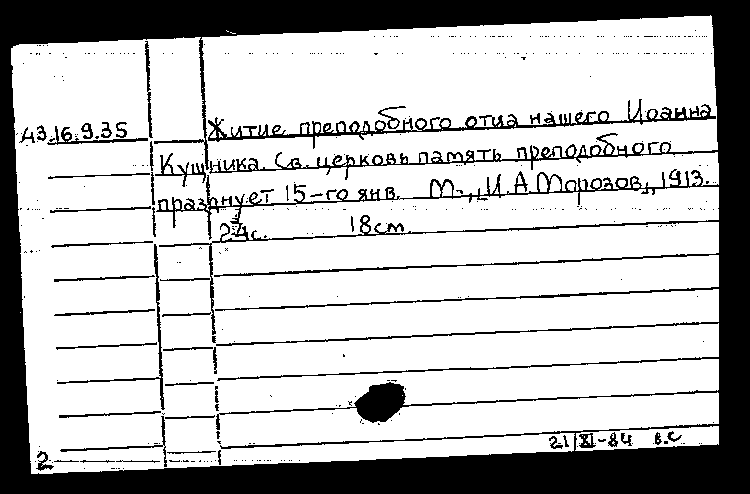 43.16.9.35 Житие преподобного отца нашего Иоанна
Кущника. Св. церковь память преподобного
празднует 15-го янв. М., "И.А Морозов", 1913.
24с. 18см.
21/XI-84 в.с
2